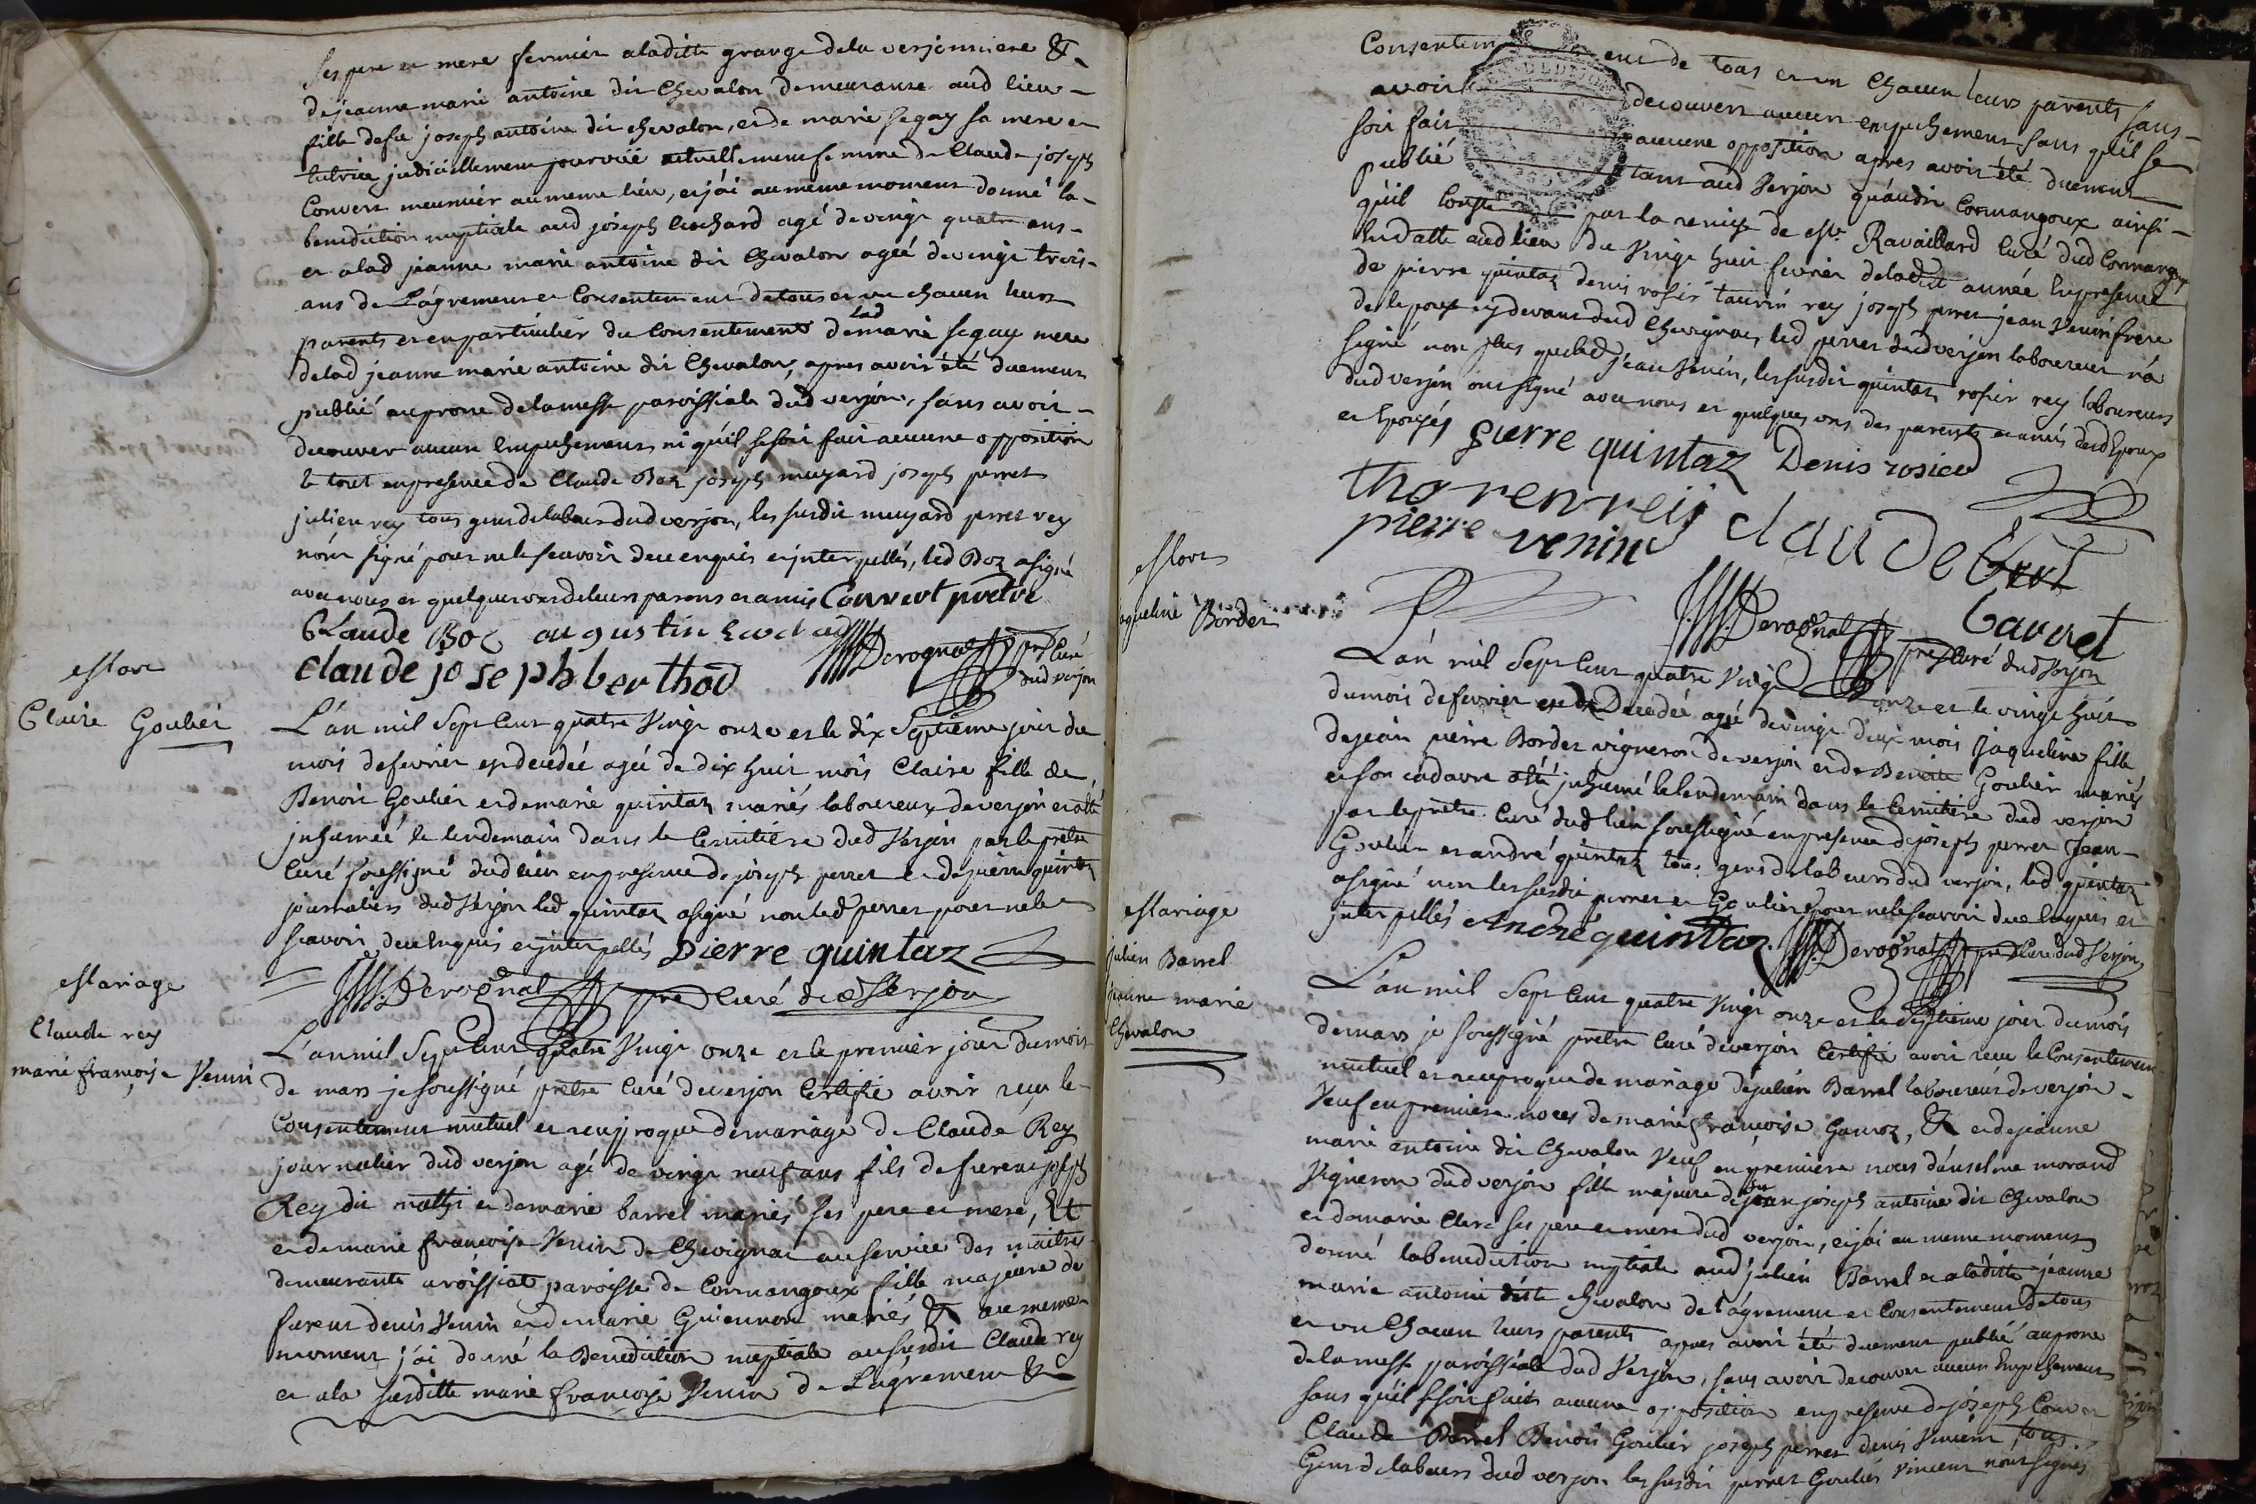 ses pere et mere fermier a ladite grange de la verjonniere &
de jeanne marie antoine dit Chevalon demeurante aud lieu
fille de feu joseph antoine dit chevalon, et de marie segay sa mere et
tutrice judiciellement actuellement femme de Claude joseph
Convert meunier au meme lieu, et j'ai au meme moment donné la
benediction nuptiale aud joseph agé de vingt quatre ans
et a lad jeanne marie antoine dit Chevalon ageé de vingt trois
ans de L'agrement et Consentement de tous et un chacun leurs
parents et en particulier du Consentement de lad marie segay mere
de lad jeanne marie antoine dit Chevalon, apres avoir été duement
publié au prone de la messe paroissiale dud verjon, sans avoir
decouver aucun Empechement ni qu'il se soit fait aucune opposition
le tout en presence de Claude Boz joseph muyard joseph perret
julien rey tous gens de labeur dud verjon, les susdit muyard perret rey
n'ont signé pour ne le scavoir de ce enquis et interpellés, led Boz a signé
avec nous et quelques uns de leurs parens et amis Convert pretre
Claude Boz augustin
claude joseph berthod Derognat ptre Curé
dud verjon
Mort
Claire Goulier
L'an mil Sept Cent quatre Vingt onze et le dix Septieme jour du
mois de fevrier est decedée ageé de dix huit mois Claire fille de
Benoit Goulier et de marie quintaz mariés laboureux de verjon et a été
inhumeé le lendemain dans le Cemitiere dud Verjon par le pretre
Curé soussigné dud lieu en presence de joseph perret et de pierre quintaz
journaliers dud Verjon led quintaz a signé non led perret pour ne le
scavoir de ce Enquis et interpellés Pierre quintaz
Derognat ptre Curé dud Verjon
Mariage
Claude rey
marie françoise Venin
L'an mil Sept Cent quatre Vingt onze et le premier jour du mois
de mars je soussigné prêtre Curé de verjon Certifie avoir recu le
Consentement mutuel et reciproque de mariage de Claude Rey
journalier dud verjon agé de vingt neuf ans fils de furent joseph
Rey dit et de marie barrel mariés ses pere et mere, Et
et de marie françoise Venin de Chevignat au service des maitres
demeurante a roissiat paroisse de Cormangoux fille majeure de
furent denis Venin et de marie mariés & au meme
moment j'ai donné la Benediction nuptiale au susdit Claude rey
et a la susditte marie françoise Venin de L'agrement &c
Consentement de tous et un Chacun leurs parents sans
avoir decouvert aucun empechement sans qu'il se
soit fait aucune opposition apres avoir été duement
publié tant aud Verjon qu'audit Cormangoux ainsi
qu'il Conste par la remise de Mr Ravaillard Curé dud Cormangoux
En datte aud lieu du Vingt huit fevrier de ladite année En presence
de pierre quintaz denis rosier taurin rey joseph perret jean Venin frere
de lepouse cydevant dud Chevignat, led perret dud verjon laboureur n'a
signé non plus que led jean Venin, les susdit quintaz rosier rey laboureurs
dud verjon ont signé avec nous et quelques uns des parents et amis desd Epoux
et Epousés pierre quintaz Denis rosier
pierre venin claude
Carret
Derognat ptre Curé dud Verjon
Mort
jaqueline Bordez
L'an mil Sept Cent quatre Vingt onze et le vingt huit
du mois de fevrier est Decedée ageé de vingt deux mois jaqueline fille
de jean pierre Bordez vigneron de verjon et de Benoite Goulier mariés
et son cadavre a été inhumé le lendemain dans le Cemitiere dud verjon
par le prêtre Curé dud lieu soussigné en presence de joseph perret jean
Goulier et andré quintaz tous gens de labeurs dud verjon, led quintaz
a signé non les susdit perret et Goulier pour ne le scavoir de ce Enquis et
interpellés André quintaz. Derognat ptre Curé dud Verjon
Mariage
julien Barrel
jeanne marie
Chevalon
L'an mil Sept Cent quatre Vingt onze et le Septieme jour du mois
de mars je soussigné prêtre Curé de verjon Certifie avoir recu le Consentement
mutuel et reciproque de mariage de julien Barrel laboureur de verjon
Veuf en premiere noces de marie françoise Gauroz, & et de jeanne
marie antoine dit Chevalon Veuf en premiere noces d'anselme morand
Vigneron dud verjon fille majeure de feu jean joseph antoine dit Chevalon
et de marie Clerc ses pere et mere dud verjon, et j'ai au meme moment
donné la benediction nuptiale aud julien Barrel et a laditte jeanne
marie antoine ditte chevalon de l'agrement et Consentement de tous
et un Chacun leurs parents apres avoir été duement publié au prone
de la messe paroissiale dud Verjon, sans avoir decouver aucun Empechement
sans qu'il se soit fait aucune opposition en presence de joseph Convert
Claude Barrel Benoit Goulier joseph perret denis Vincent tous
Gens de labeurs dud verjon les susdit perret Goulier Vincent n'ont signés